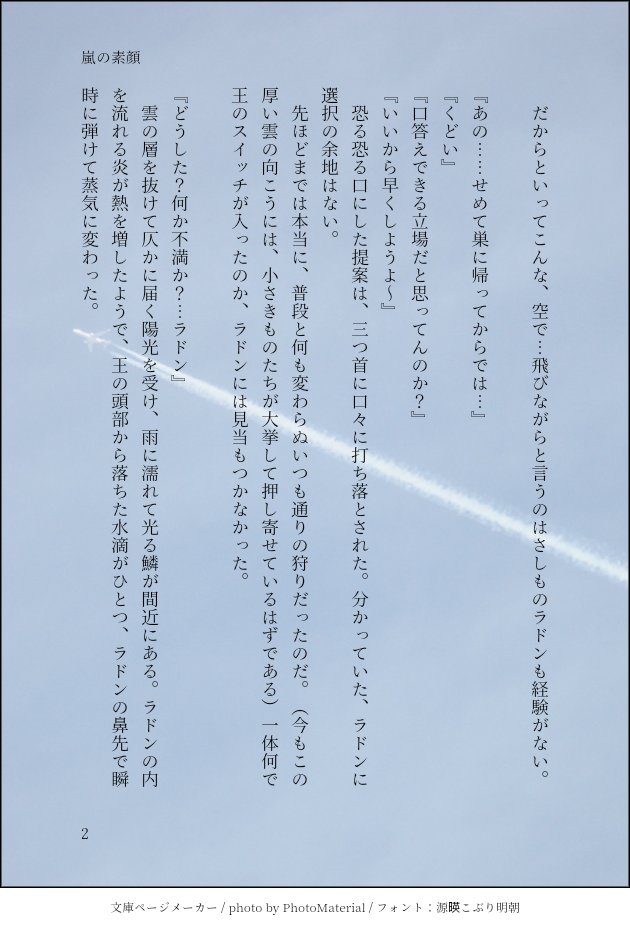 嵐の素顔
だからといってこんな、空で…飛びながらと言うのはさしものラドンも経験がない。
『あの……せめて巣に帰ってからでは…』
『くどい』
『口答えできる立場だと思ってんのか？』
『いいから早くしようよ〜』
恐る恐る口にした提案は、三つ首に口々に打ち落とされた。分かっていた、ラドンに
選択の余地はない。
先ほどまでは本当に、普段と何も変わらぬいつも通りの狩りだったのだ。（今もこの
厚い雲の向こうには、小さきものたちが大挙して押し寄せているはずである）一体何で
王のスイッチが入ったのか、ラドンには見当もつかなかった。
『どうした？何か不満か？…ラドン』
雲の層を抜けて仄かに届く陽光を受け、雨に濡れて光る鱗が間近にある。ラドンの内
を流れる炎が熱を増したようで、王の頭部から落ちた水滴がひとつ、ラドンの鼻先で瞬
時に弾けて蒸気に変わった。
2
文庫ページメーカー / photo by PhotoMaterial / フォント：源暎こぶり明朝